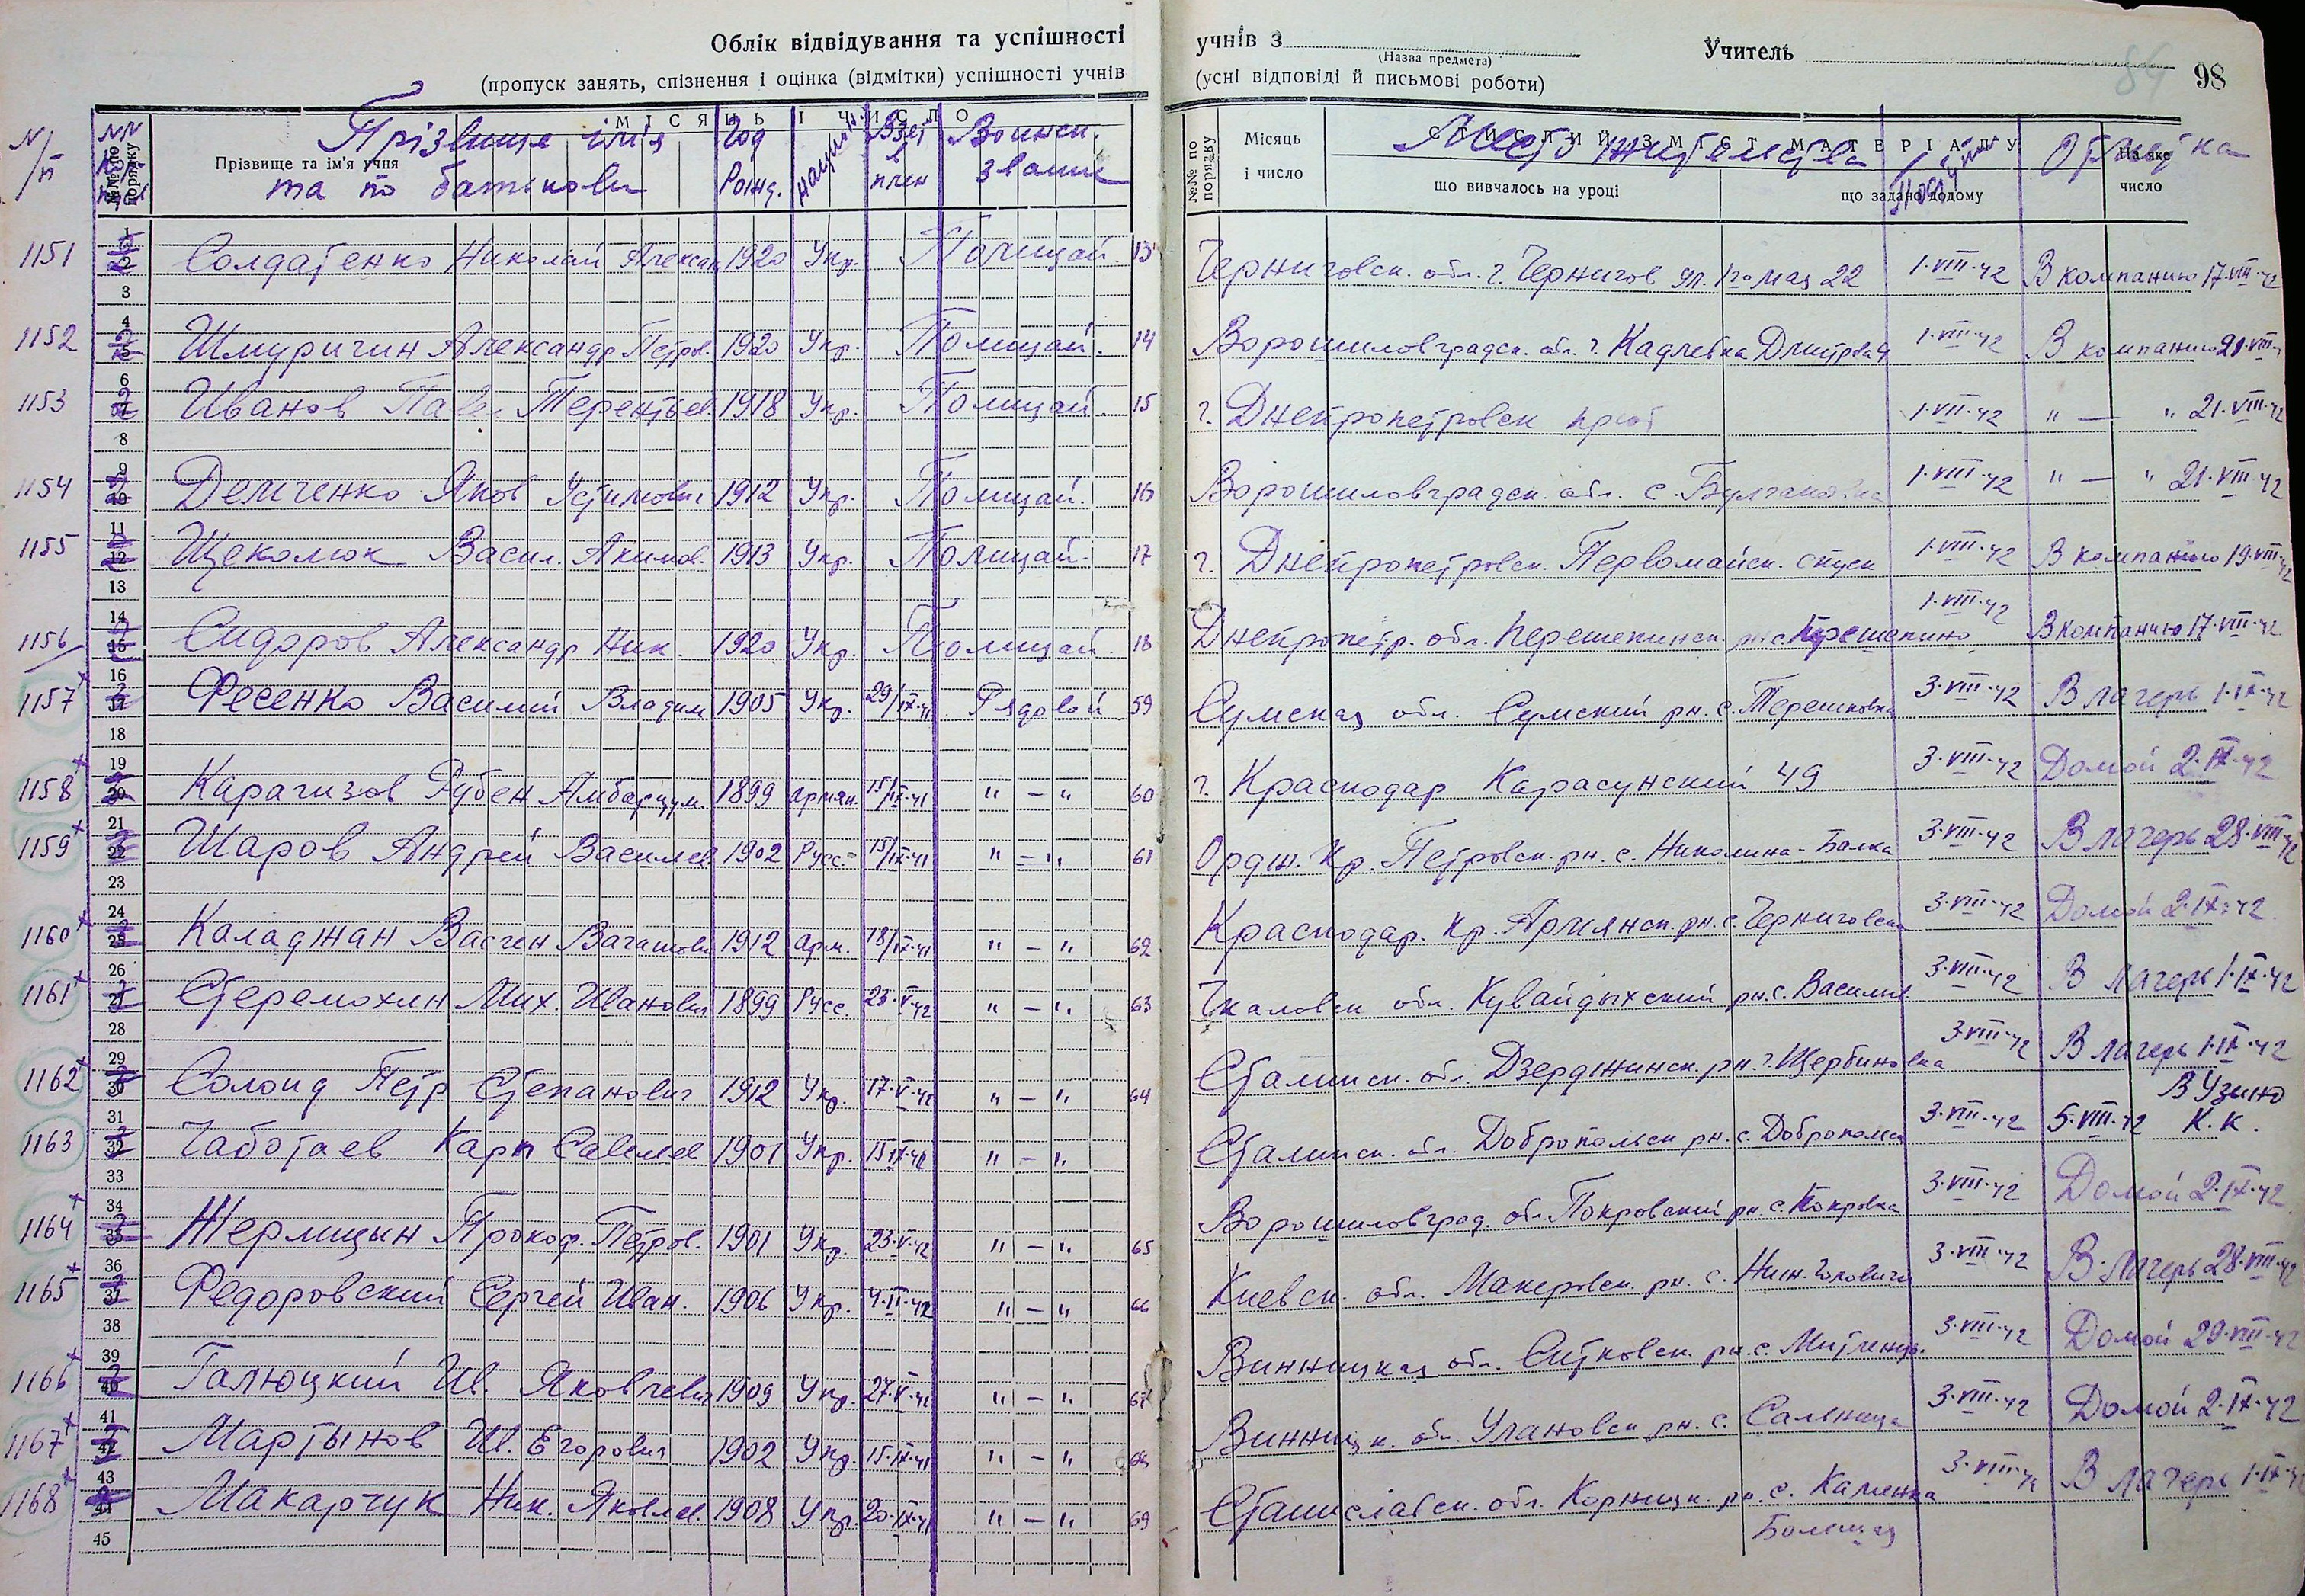 Облік відвідування та успішності учнів з Учитель
(Назва предмета)
(пропуск занять, спізнення і оцінка (відмітки) успішності учнів (усні відповіді й письмові роботи)
98
№№ по порядку
Прізвище та ім'я учня
МІСЯЦЬ І ЧИСЛО
№№ по порядку
Місяць і число
СТИСЛИЙ ЗМІСТ МАТЕРІАЛУ
що вивчалось на уроці
що задано додому
На яке число
N/п Прізвище ім'я та по батькови Год рожд. национ. Взят в плен Воинск. звание Место жительства Поступил Отметка
1151 Солдатенко Николай Алексан 1920 Укр. Полицай. 13 Черниговск. обл. г. Чернигов ул. 1го Мая 22 1·VIII·42 В компанию 17·VIII·42
1152 Шмуригин Александр Петров. 1920 Укр. Полицай. 14 Ворошиловградск. обл. г. 1·VIII·42 В компанию
1153 Иванов Павел Терентьев. 1918 Укр. Полицай. 15 г. Днепропетровск 1·VIII·42 " — " 21·VIII·42
1154 Демченко Яков Устимович 1912 Укр. Полицай. 16 Ворошиловградск. обл. с. 1·VIII·42 " — " 21·VIII·42
1155 Щеколюк Васил. Акимов. 1913 Укр. Полицай. 17 г. Днепропетровск. Первомайск. спуск 1·VIII·42 В компанию 19·VIII·42
1156 Сидоров Александр Ник. 1920 Укр. Полицай. 18 Днепропетр. обл. Перещепинск. рн. с. Перещепино 1·VIII·42 В компанию 17·VIII·42
1157 Фесенко Василий Владим 1905 Укр. 29/IX·41 Рядовой 59 Сумская обл. Сумский рн. с. Терешковка 3·VIII·42 В лагерь 1·IX·42
1158 Карагизов Рубен Амбарцум. 1899 армян. 15/IX·41 " — " 60 г. Краснодар Карасунский 49 3·VIII·42 Домой 2·IX·42
1159 Шаров Андрей Василев. 1902 Русс. 15/IX·41 " — " 61 Ордж. Кр. Петровск. рн. с. Николина-Балка 3·VIII·42 В лагерь 28·VIII·42
1160 Каладжан Вагшен 1912 арм. 18/IX·41 " — " 62 Краснодар. Кр. Армянск. рн. с. Черниговск 3·VIII·42 Домой 2·IX·42
1161 Стеремохин Мих. Иванович 1899 Русс. 23·V·42 " — " 63 Чкаловск обл. рн. с. Василив 3·VIII·42 В лагерь 1·IX·42
1162 Солоид Петр Степанович 1912 Укр. 17·V·42 " — " 64 Сталинск. обл. Дзержинск. рн. г. Щербиновка 3·VIII·42 В лагерь 1·IX·42
1163 Чаботаев Карп Савелев 1901 Укр. " — " Сталинск. обл. Добропольск рн. с. Доброполье 3·VIII·42 5·VIII·42 В Узино К.К.
1164 Жермицын Прокоф. Петров. 1901 Укр. 23·V·42 " — " 65 Ворошиловград. обл. Покровский рн. с. Покровка 3·VIII·42 Домой 2·IX·42
1165 Федоровский Сергей Иван. 1906 Укр. " — " 66 Киевск. обл. Макеровск. рн. с. 3·VIII·42 В лагерь 28·VIII·42
1166 Галюцкий Ив. Яковлевич 1909 Укр. " — " 67 Винницкая обл. Ситковск. рн. с. 3·VIII·42 Домой 29·VIII·42
1167 Мартынов Ив. Егорович 1902 Укр. 15·IX·41 " — " 68 Винницк. обл. Улановск рн. с. Сальница 3·VIII·42 Домой 2·IX·42
1168 Макарчук Ник. Яковлев. 1908 Укр. 20·IX·41 " — " 69 Станиславск. обл. рн. с. Каменка Большая В лагерь 1·IX·42